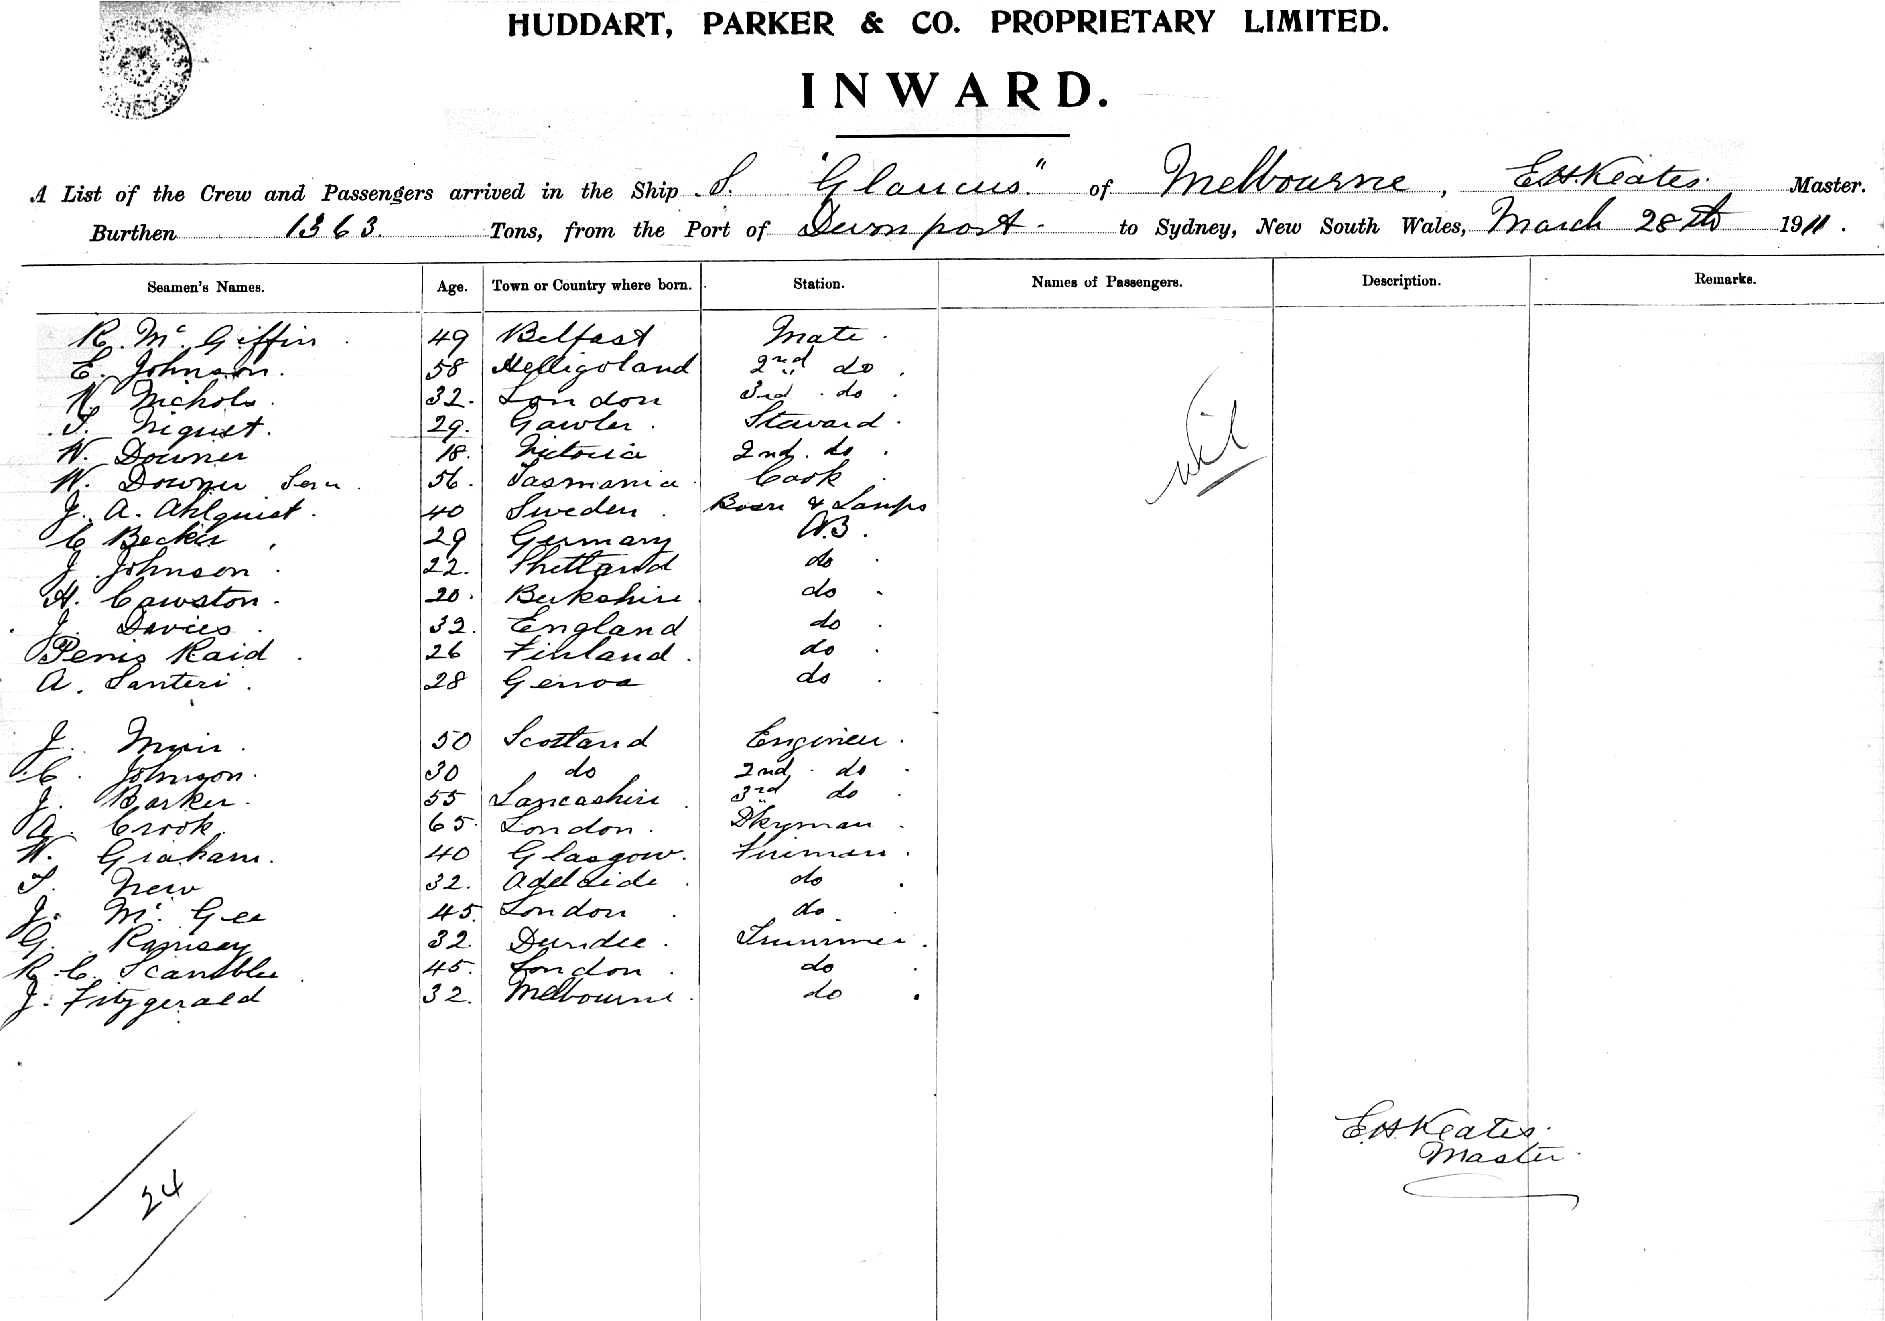 HUDDART, PARKER & CO. PROPRIETARY LIMITED.
INWARD.
A List of the Crew and Passengers arrived in the Ship S. "Glaucus" of Melbourne, E.H. Keates. Master.
Burthen 1363. Tons, from the Port of Devonport to Sydney, New South Wales, March 28th 1911.
Seamen's Names. Age. Town or Country where born. Station. Names of Passengers. Description. Remarks.
R. McGiffin 49 Belfast Mate
E. Johnson. 58 Helligoland 2nd do
Nichols 32. London 3rd do
Niquist. 29. Gawler. Steward
W. Downer 18. Victoria 2nd. do
W. Downer Senr 56. Tasmania Cook
J. A. Ahlquist. 40 Sweden Bosn & Lamps
C Becker 29 Germany A.B.
J Johnson 22. Shetland do
H. Cawston. 20. Berkshire do
J. Davies 32. England do
Raid 26 Finland. do
A. Santeri. 28 Genoa do
nil
J. Muir. 50 Scotland Engineer.
C. Johnson. 30 do 2nd. do
J. Barker. 55 Lancashire 3rd do
A. Crook. 65. London. Dkyman
W. Graham. 40 Glasgow. Fireman.
T. New 32. Adelaide do
J. Mc Gee 45. London do
G. Ramsay 32. Dundee. Trimmer.
R. C. 45. London do
J. Fitzgerald 32. Melbourne. do
E.H. Keates.
Master.
24